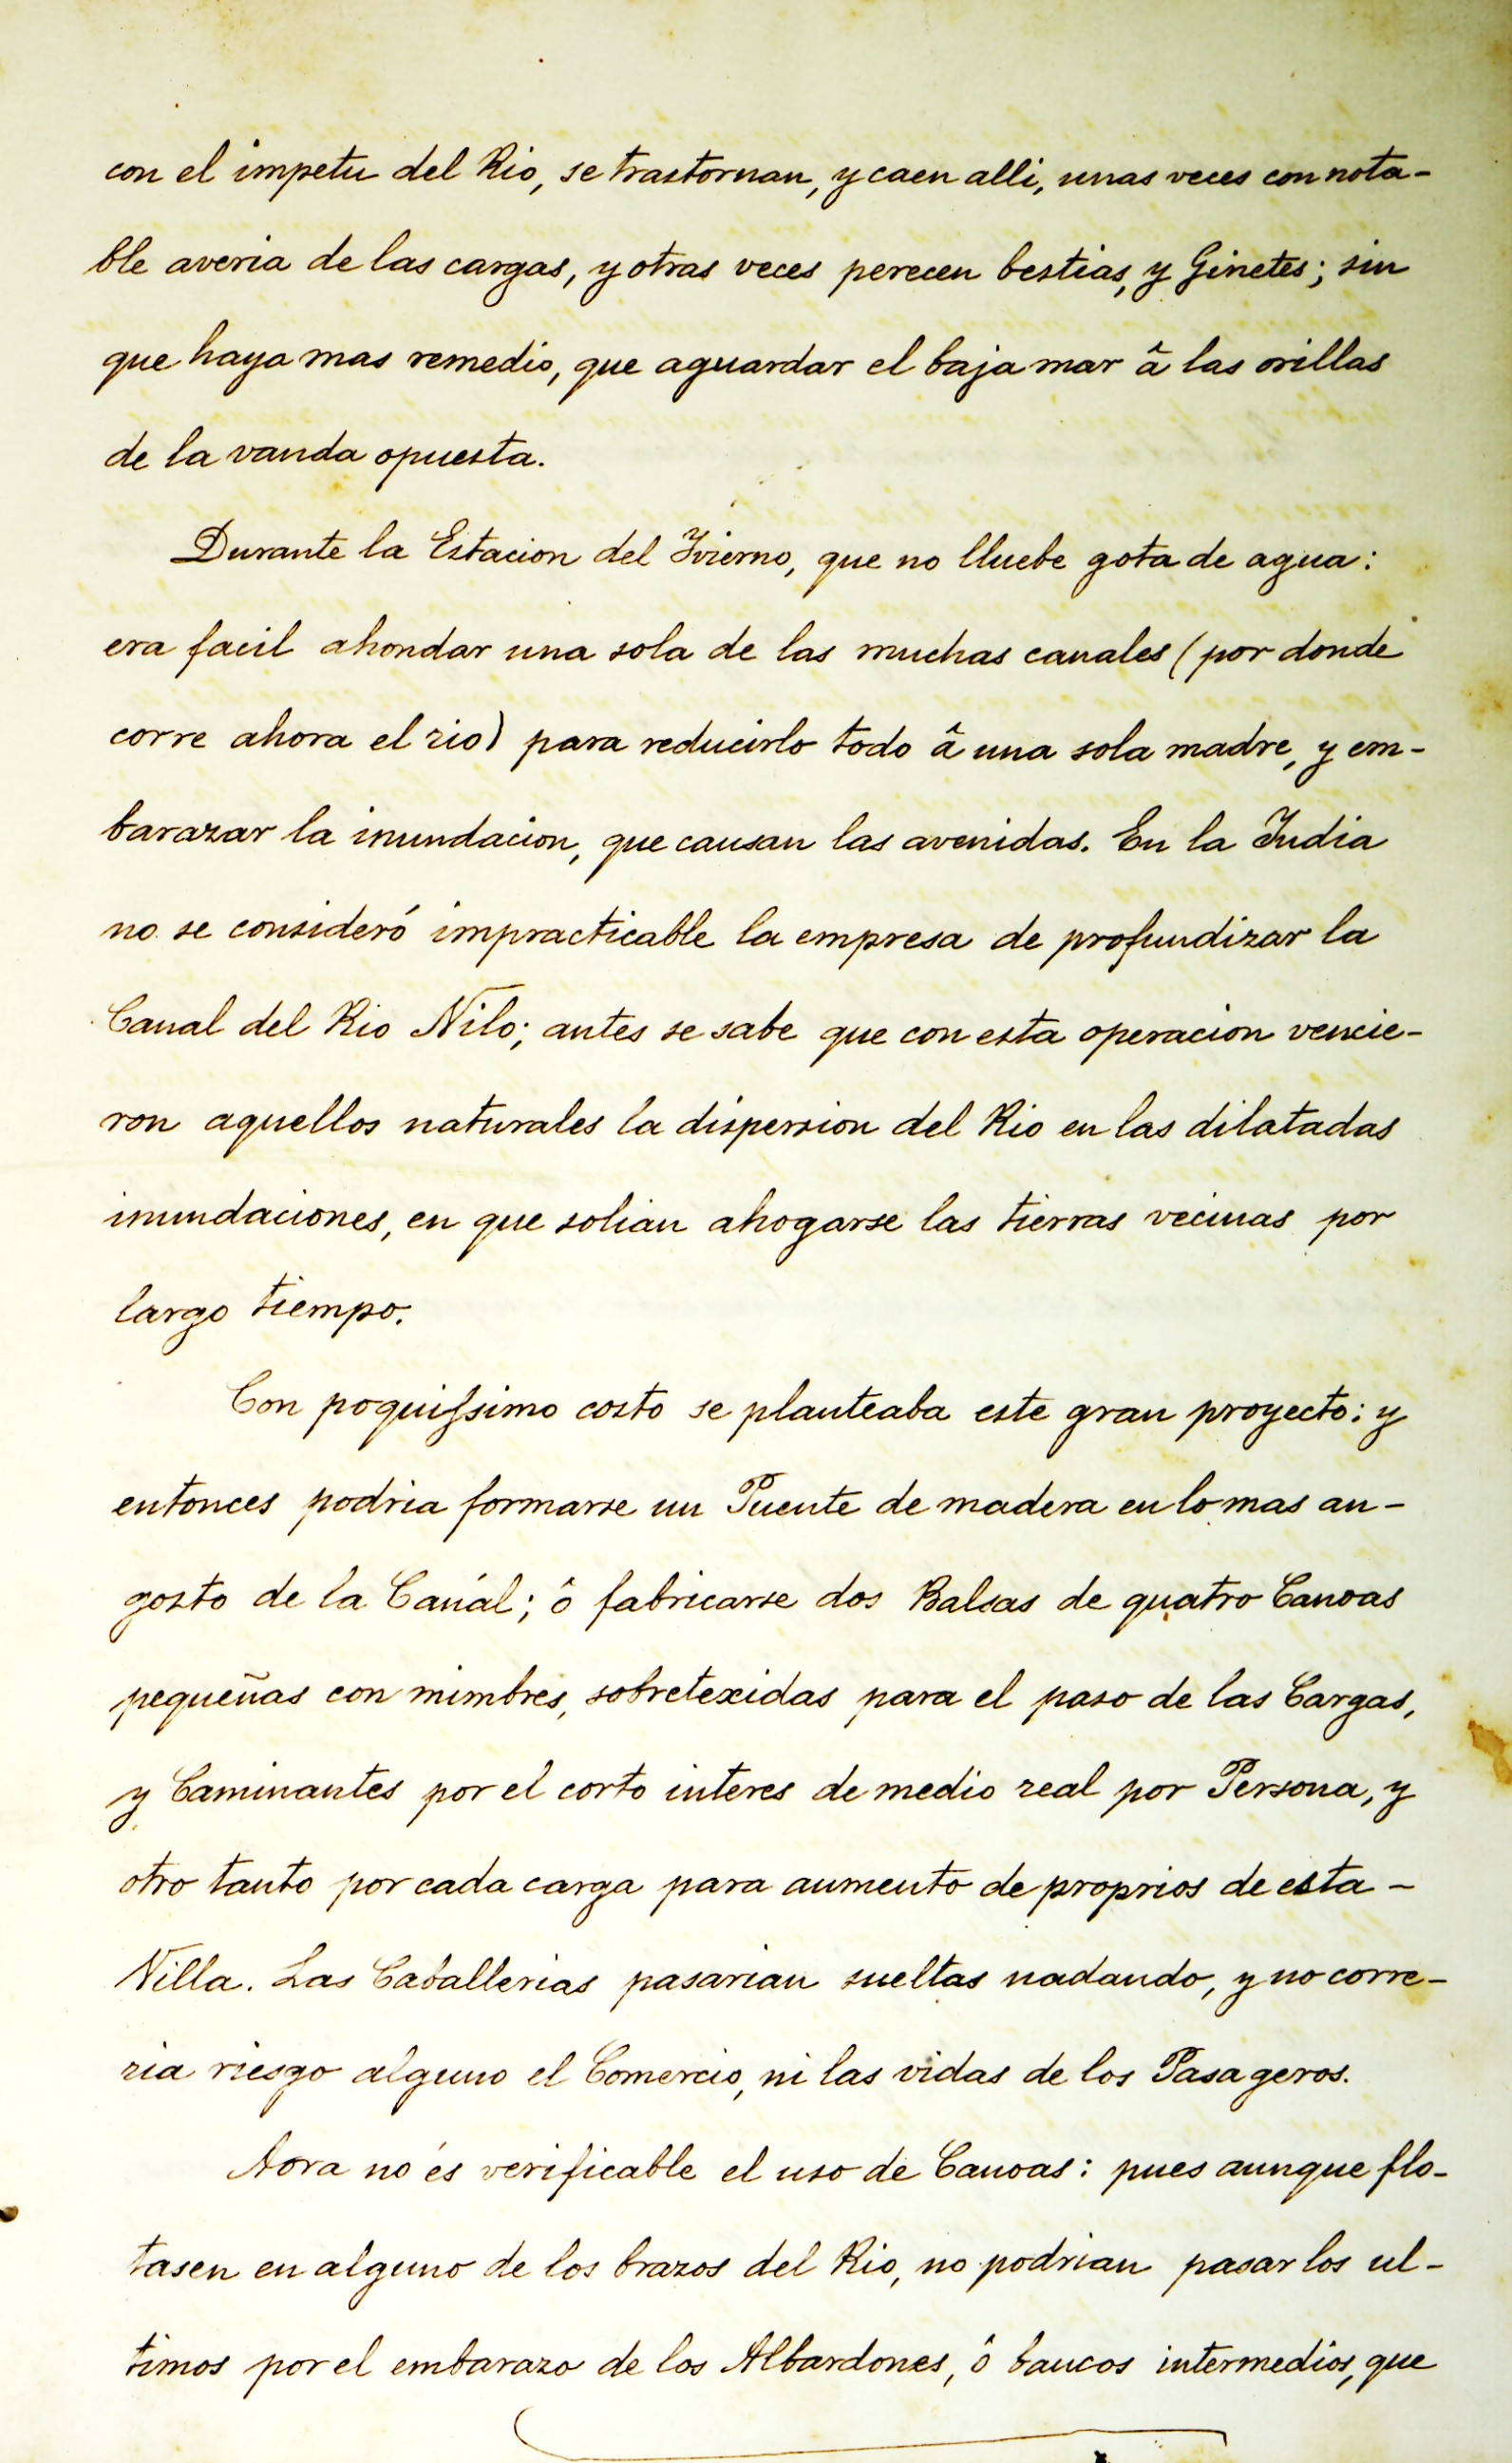 con el impetu del Rio, se trastornan, y caen alli, unas veces con nota-
ble averia de las cargas, y otras veces perecen bestias, y Ginetes; sin
que haya mas remedio, que aguardar el baja mar â las orillas
de la vanda opuesta.
Durante la Estacion del Ivierno, que no lluebe gota de agua:
era facil ahondar una sola de las muchas canales (por donde
corre ahora el rio) para reducirlo todo â una sola madre, y em-
barazar la inundacion, que causan las avenidas. En la India
no se consideró impracticable la empresa de profundizar la
Canal del Rio Nilo; antes se sabe que con esta operacion vencie-
ron aquellos naturales la dispersion del Rio en las dilatadas
inundaciones, en que solian ahogarse las tierras vecinas por
largo tiempo.
Con poquissimo costo se planteaba este gran proyecto: y
entonces podria formarse un Puente de madera en lo mas an-
gosto de la Canál; ô fabricarse dos Balsas de quatro Canoas
pequeñas con mimbres, sobretexidas para el paso de las Cargas,
y Caminantes por el corto interes de medio real por Persona, y
otro tanto por cada carga para aumento de proprios de esta-
Villa. Las Caballerias pasarian sueltas nadando, y no corre-
ria riesgo alguno el Comercio, ni las vidas de los Pasageros.
Aora no és verificable el uso de Canoas: pues aunque flo-
tasen en alguno de los brazos del Rio, no podrian pasar los ul-
timos por el embarazo de los Albardones, ô bancos intermedios, que